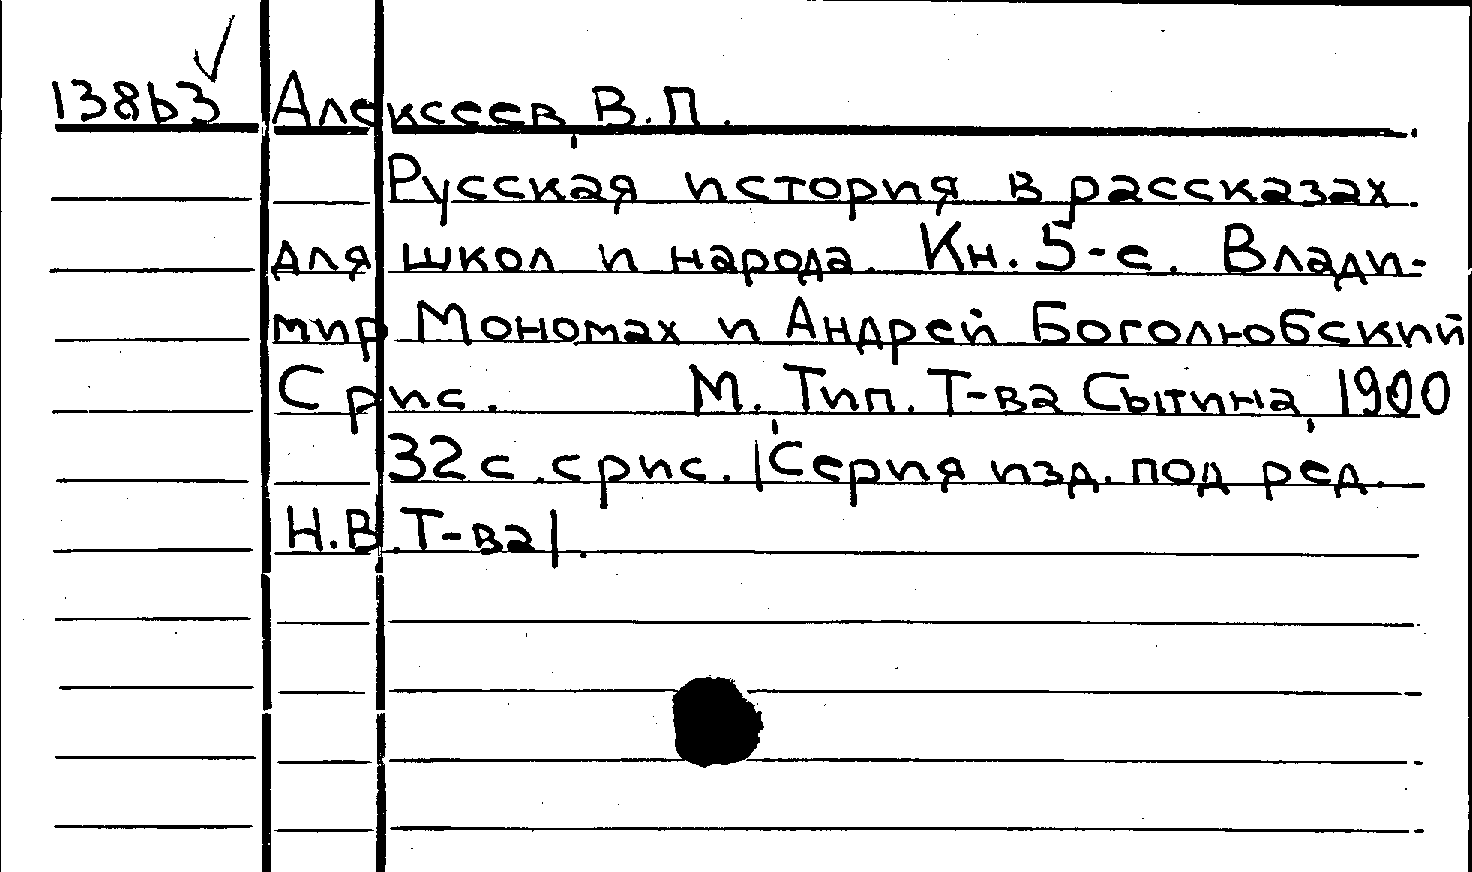 138b3 Алексеев, В.П.
Русская история в рассказах
для школ и народа. Кн. 5-е. Влади-
мир Мономах и Андрей Боголюбский
С рис. М. Тип. Т-ва Сытина, 1900
32с. с рис. |Серия изд. под ред.
Н.В. Т-ва|.